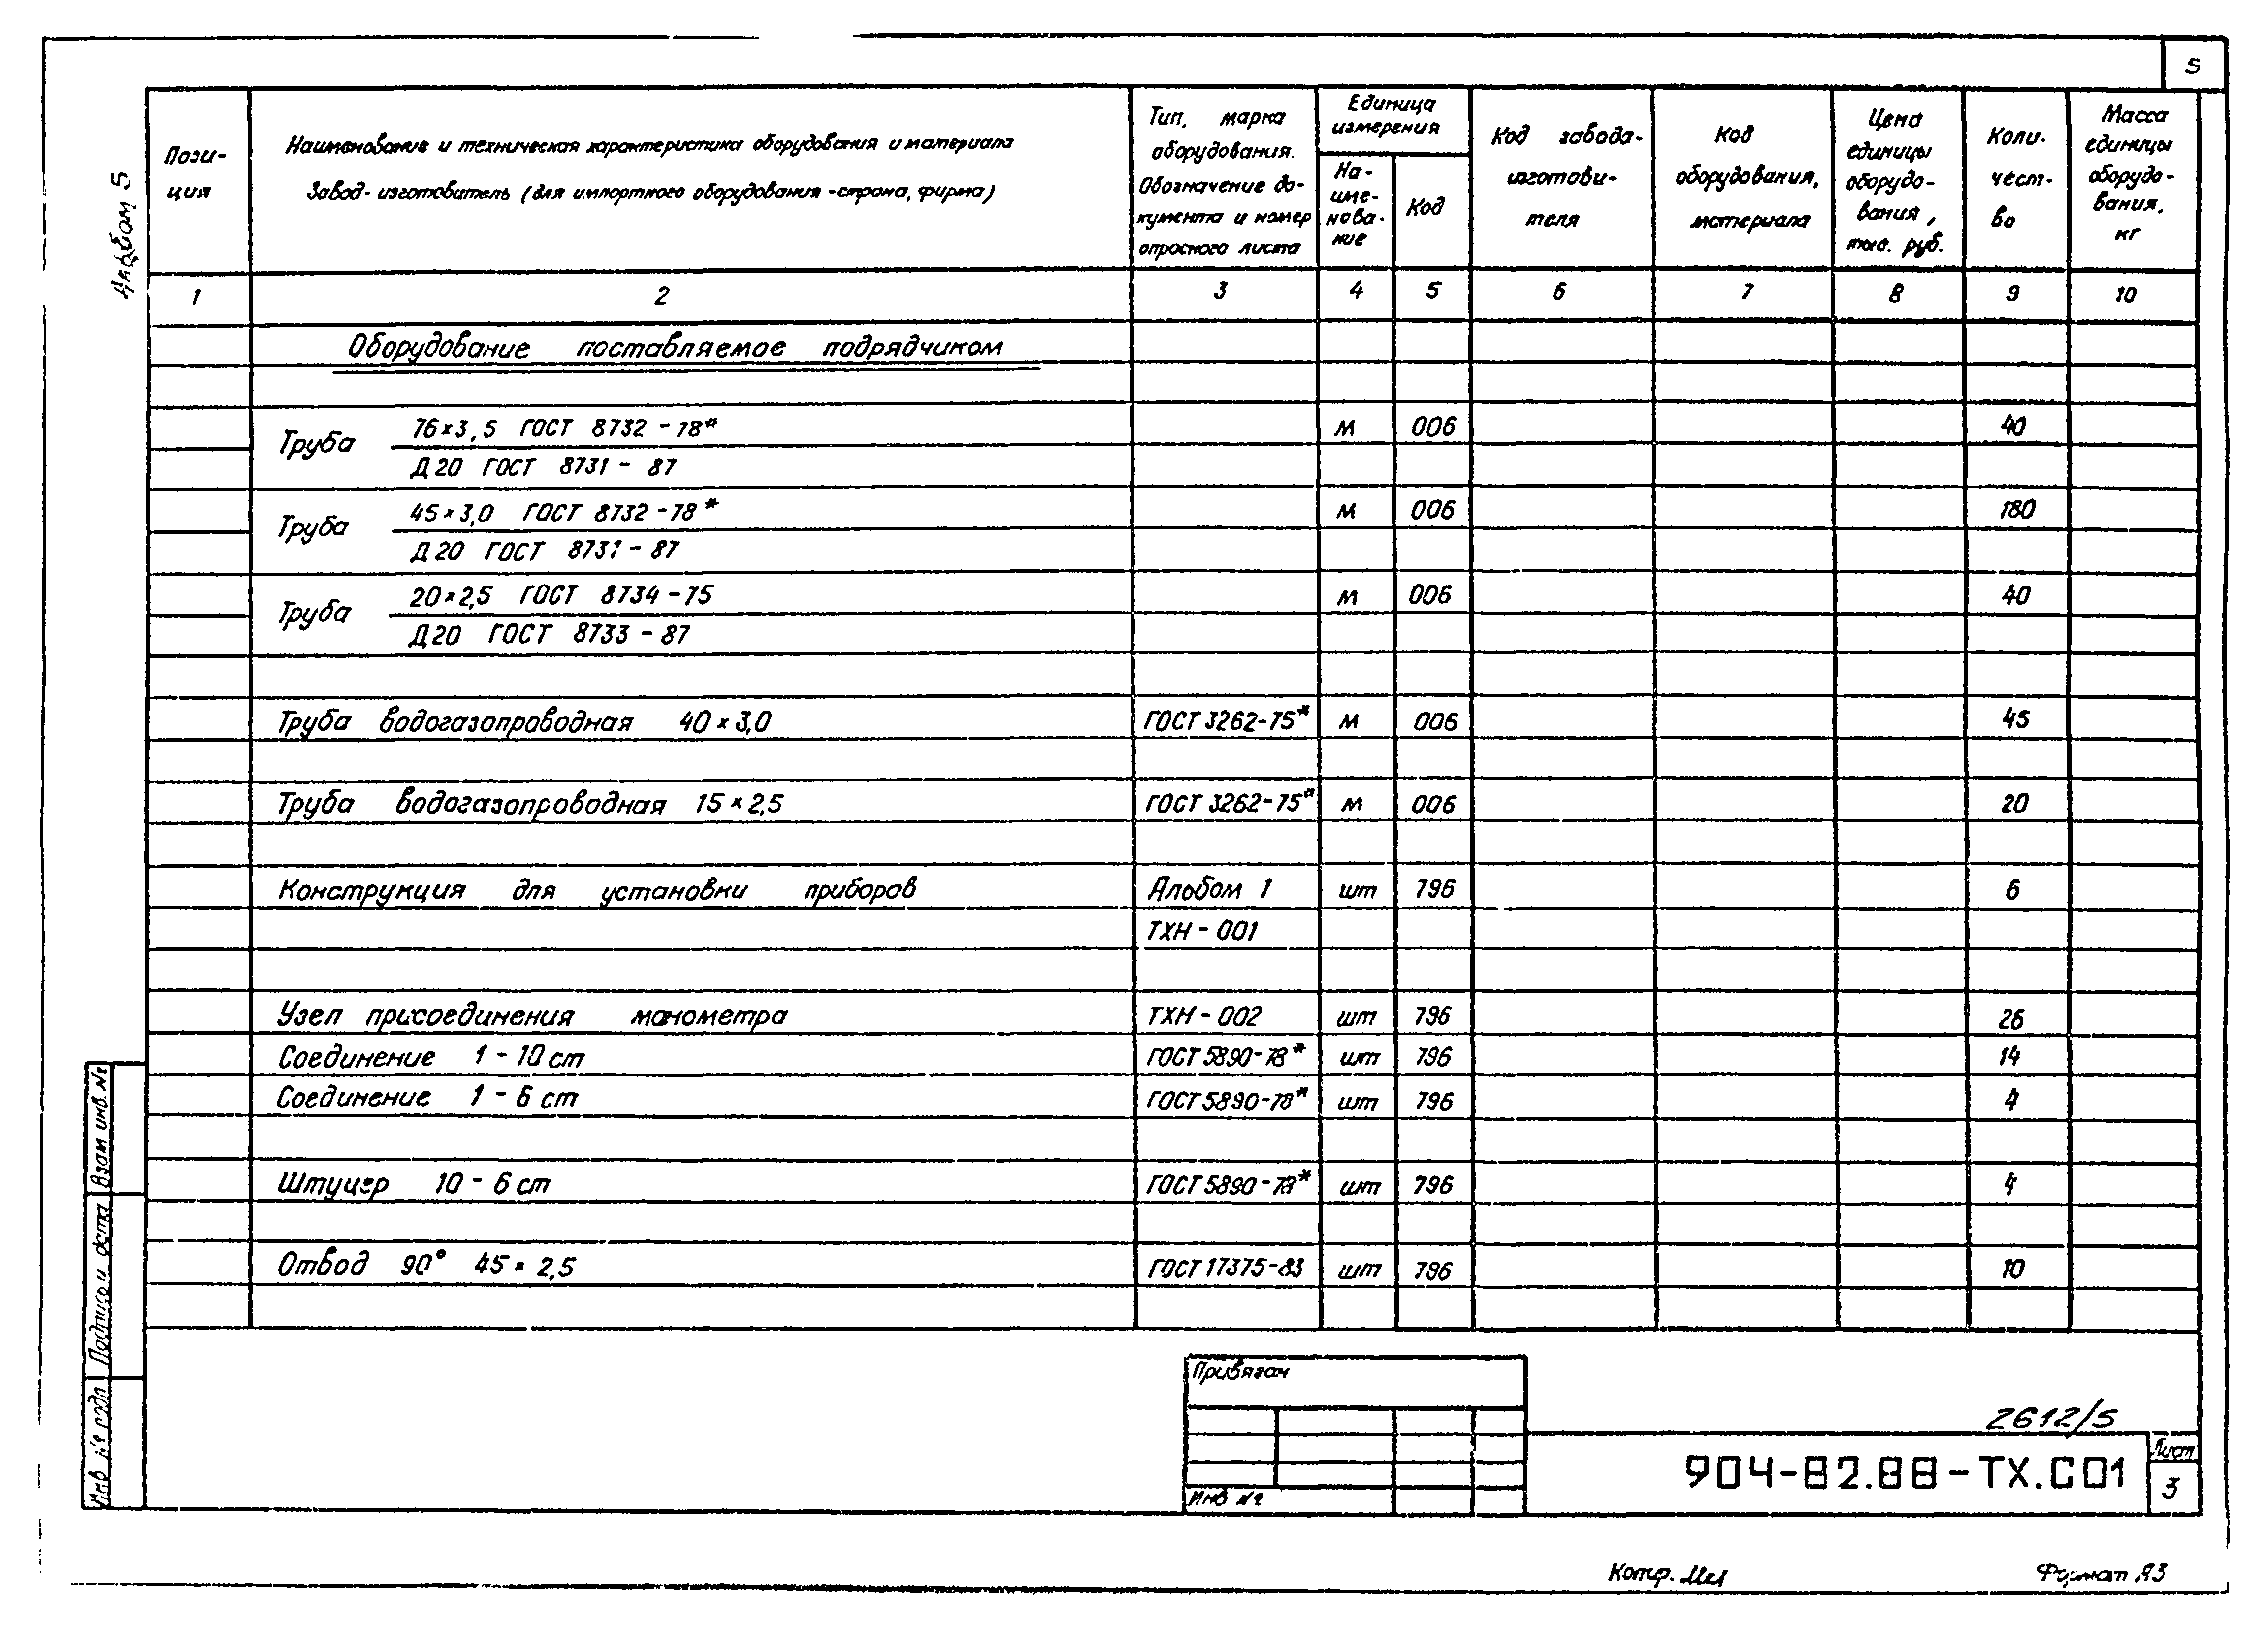 5
Альбом 5
Пози-
ция
Наименование и техническая характеристика оборудования и материала
Завод-изготовитель (для импортного оборудования - страна, фирма)
Тип, марка
оборудования.
Обозначение до-
кумента и номер
опросного листа
Единица
измерения
На-
име-
нова-
ние
Код
Код завода-
изготови-
теля
Код
оборудования,
материала
Цена
единицы
оборудо-
вания,
тыс. руб.
Коли-
чест-
во
Масса
единицы
оборудо-
вания,
кг
1 2 3 4 5 6 7 8 9 10
Оборудование поставляемое подрядчиком
Труба 76×3,5 ГОСТ 8732-78* м 006 40
Д20 ГОСТ 8731-87
Труба 45×3,0 ГОСТ 8732-78* м 006 180
Д20 ГОСТ 8731-87
Труба 20×2,5 ГОСТ 8734-75 м 006 40
Д20 ГОСТ 8733-87
Труба водогазопроводная 40×3,0 ГОСТ 3262-75* м 006 45
Труба водогазопроводная 15×2,5 ГОСТ 3262-75* м 006 20
Конструкция для установки приборов Альбом 1 шт 796 6
ТХН-001
Узел присоединения манометра ТХН-002 шт 796 26
Соединение 1-10 ст ГОСТ 5890-78* шт 796 14
Соединение 1-6 ст ГОСТ 5890-78* шт 796 4
Штуцер 10-6 ст ГОСТ 5890-78* шт 796 4
Отвод 90° 45×2,5 ГОСТ 17375-83 шт 796 10
Взам инв. №
Подпись и дата
Инв № подл
Привязан
Инв №
2612/5
904-82.88-ТХ.С01
Лист
3
Копир.
Формат А3